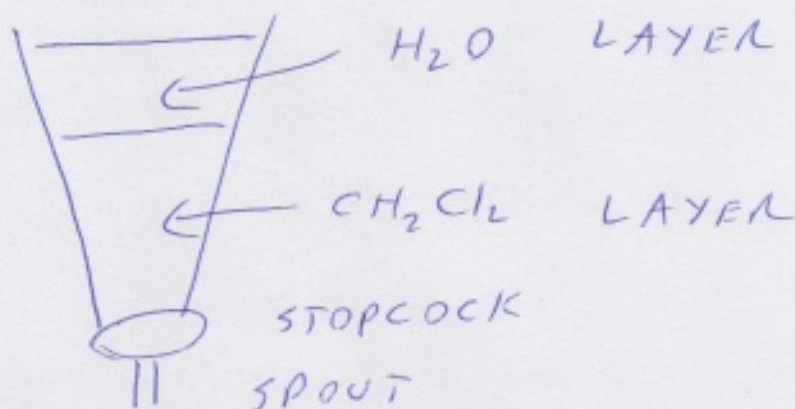 H₂O LAYER
CH₂Cl₂ LAYER
STOPCOCK
SPOUT